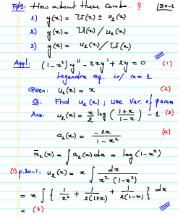 How about these Combo. ?
1) y(x) = U(x) ± u₂(x)
2) y(x) = U(x) / u₂(x)
3) y(x) = u₂(x) / U(x)
Appl: (1-x²)y'' - 2xy' + 2y = 0 (1)
Legendre eq. w/ n=1
Given: u₁(x) = x (2)
Q: Find u₂(x); use Var. of param
Ans: u₂(x) = x/2 log((1+x)/(1-x)) - 1 (3)
a₁(x) = -2x/(1-x²) (4)
ā₁(x) = ∫a₁(x)dx = log(1-x²)
(1) p.30-1: u₂(x) = x ∫ dx/(x²(1-x²))
= x ∫ { 1/x² + 1/(2(1+x)) + 1/(2(1-x)) } dx
= (3)